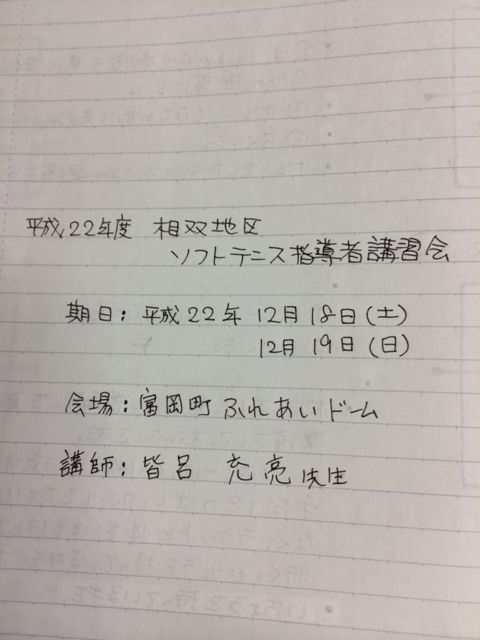 平成22年度 相双地区
ソフトテニス指導者講習会
期日：平成22年 12月18日(土)
12月19日(日)
会場：富岡町ふれあいドーム
講師：皆呂 充亮先生